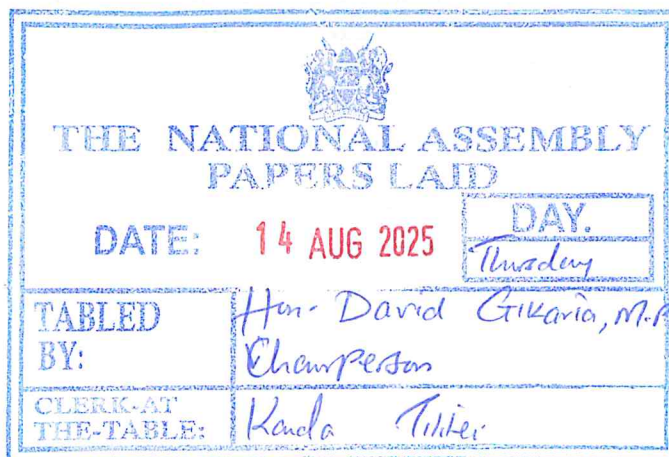 THE NATIONAL ASSEMBLY
PAPERS LAID
DATE: 14 AUG 2025
DAY.
Thursday
TABLED BY: Hon. David Gikaria, M.P
Chairperson
CLERK-AT
THE-TABLE: